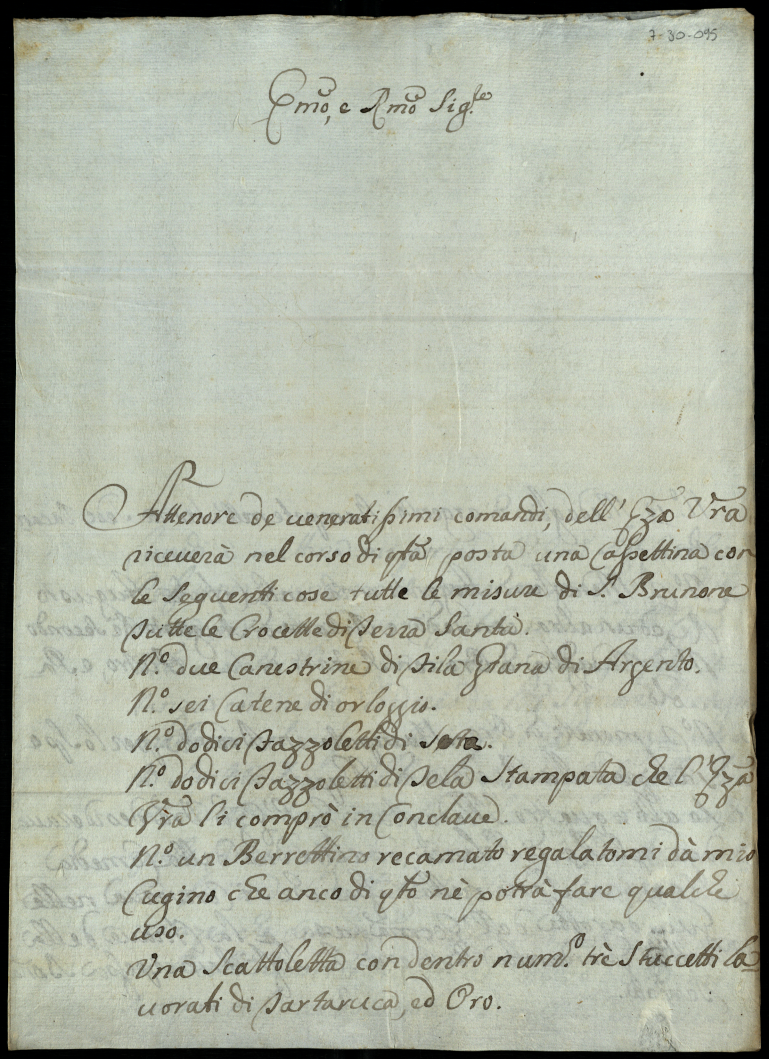 7-30-095
Emo, e Rmo Sig.re
Attenore de veneratissimi comandi, dell' Eza Vra
riceverà nel corso di qta posta una Cassettina con
le seguenti cose tutte le misure di S. Brunone
tutte le Crocette di Terra Santa.
N.o due Canestrine di fila Grana di Argento.
N.o sei Catene di orloggio.
N.o dodici fazzoletti di Seta.
N.o dodici fazzoletti di tela Stampata che l' Eza
Vra li comprò in Conclave.
N.o un Berrettino recamato regalatomi dà mio
Cugino che anco di qto nè potrà fare qualche
uso.
Una Scattoletta con dentro num.o trè Stuccetti la=
vorati di Tartaruca, ed Oro.